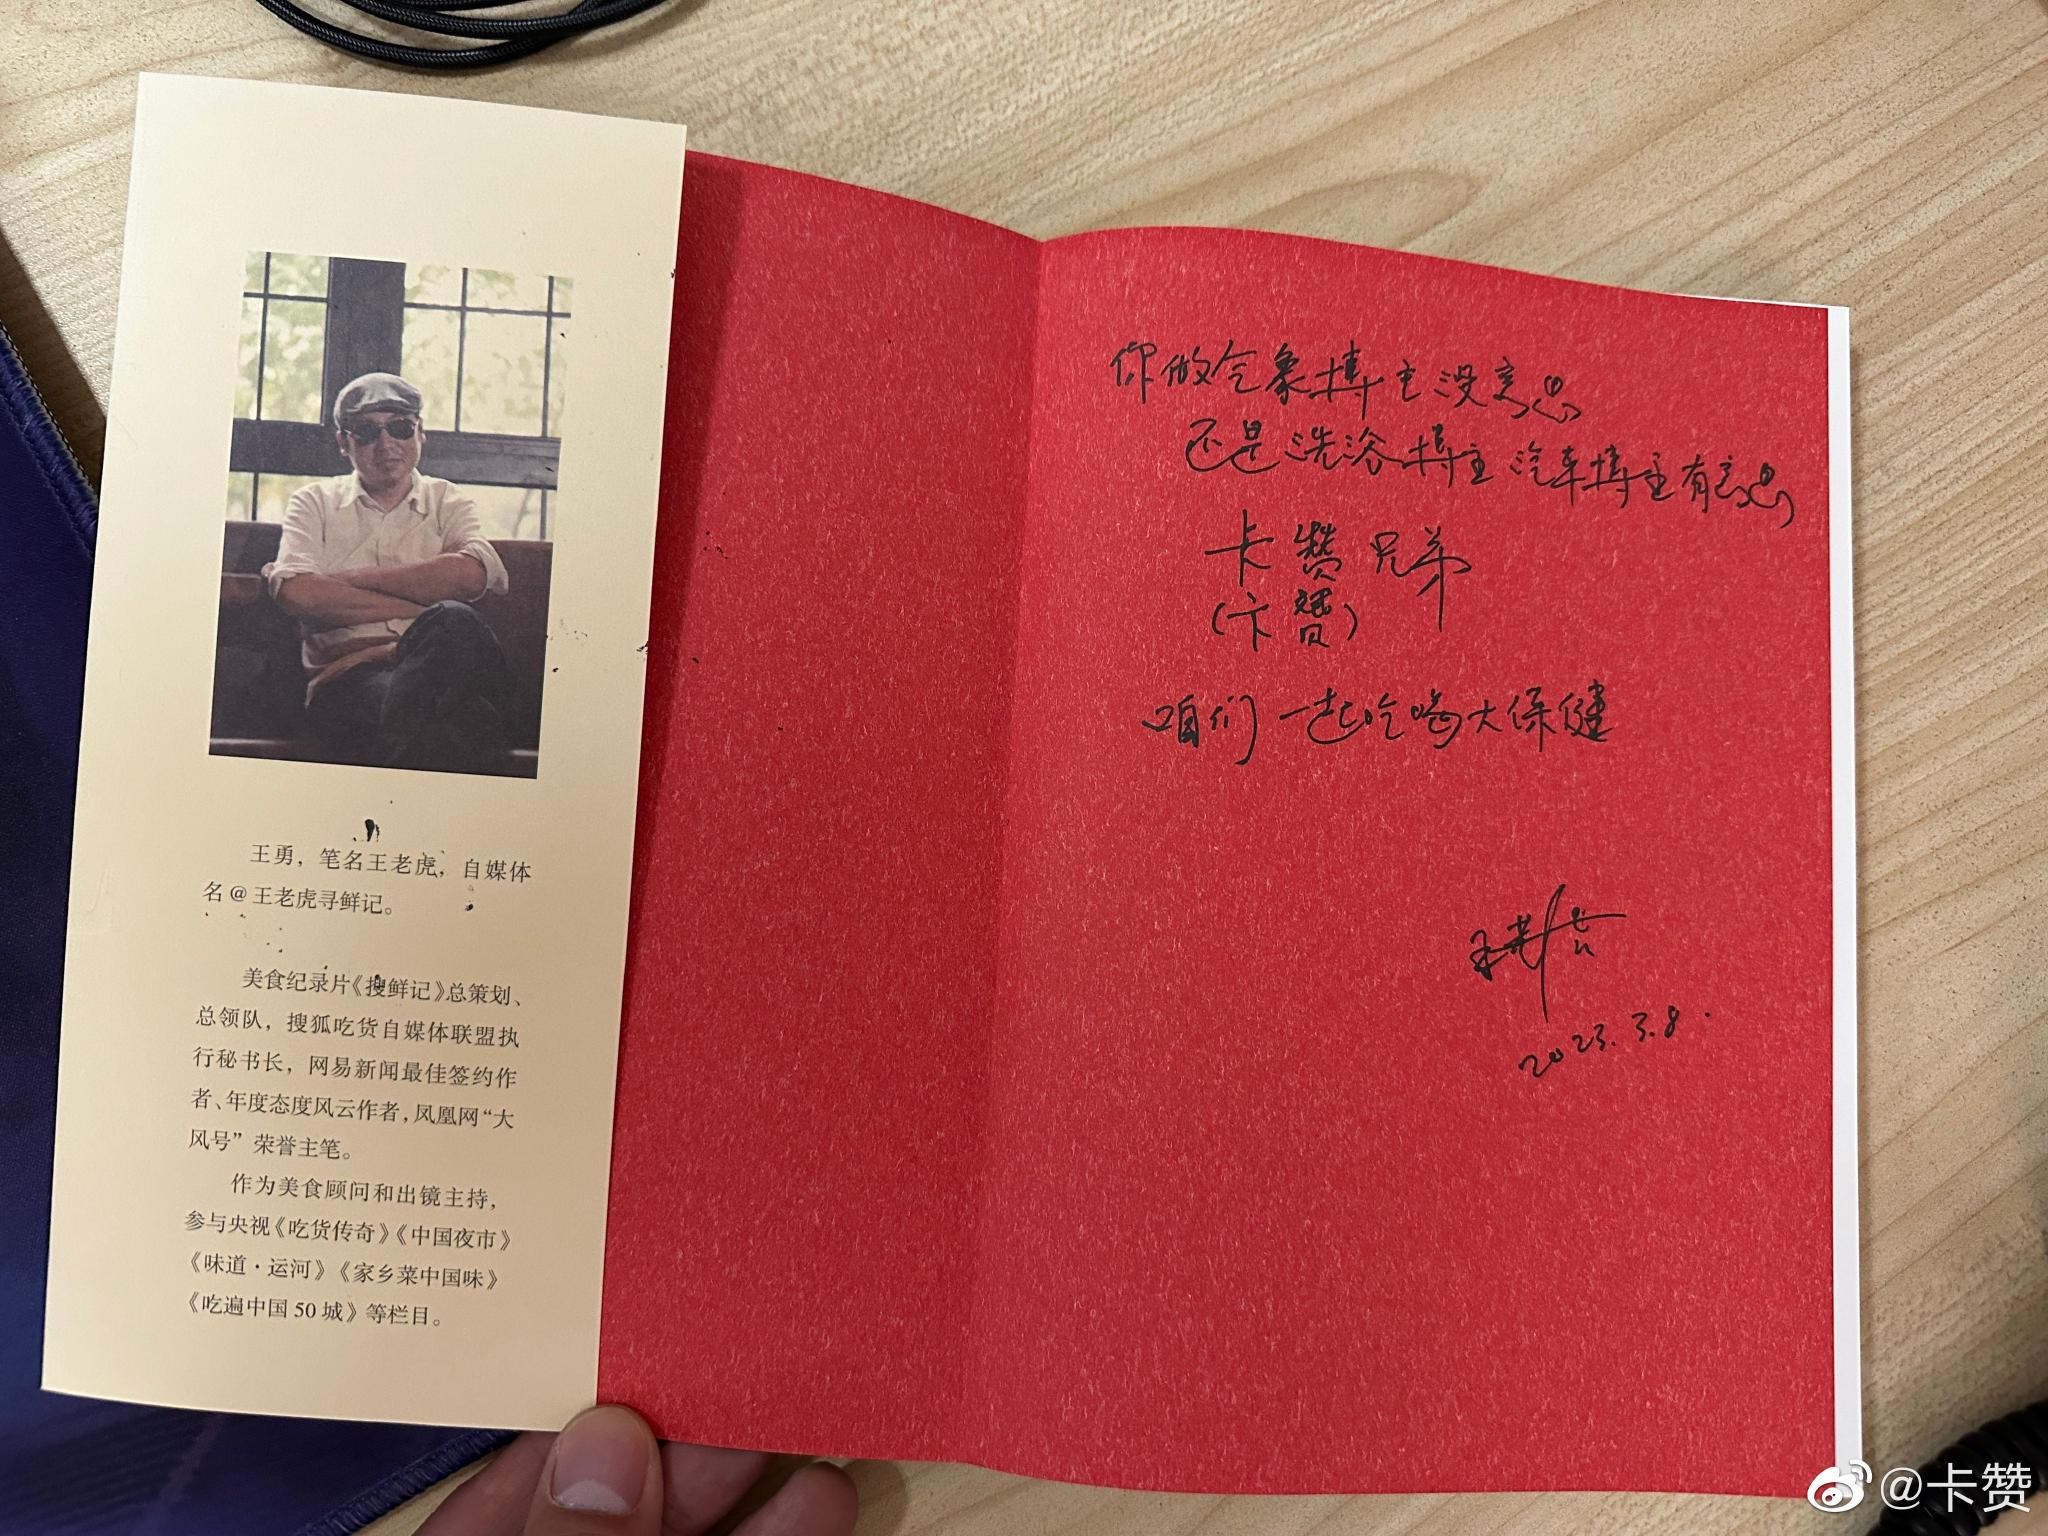 王勇，笔名王老虎，自媒体
名@王老虎寻鲜记。
美食纪录片《搜鲜记》总策划、
总领队，搜狐吃货自媒体联盟执
行秘书长，网易新闻最佳签约作
者、年度态度风云作者，凤凰网“大
风号”荣誉主笔。
作为美食顾问和出镜主持，
参与央视《吃货传奇》《中国夜市》
《味道·运河》《家乡菜中国味》
《吃遍中国50城》等栏目。
你做气象博主没意思
还是洗浴博主汽车博主有意思
卡赞兄弟
(卞赟)
咱们一起吃喝大保健
2023.3.8.
@卡赞